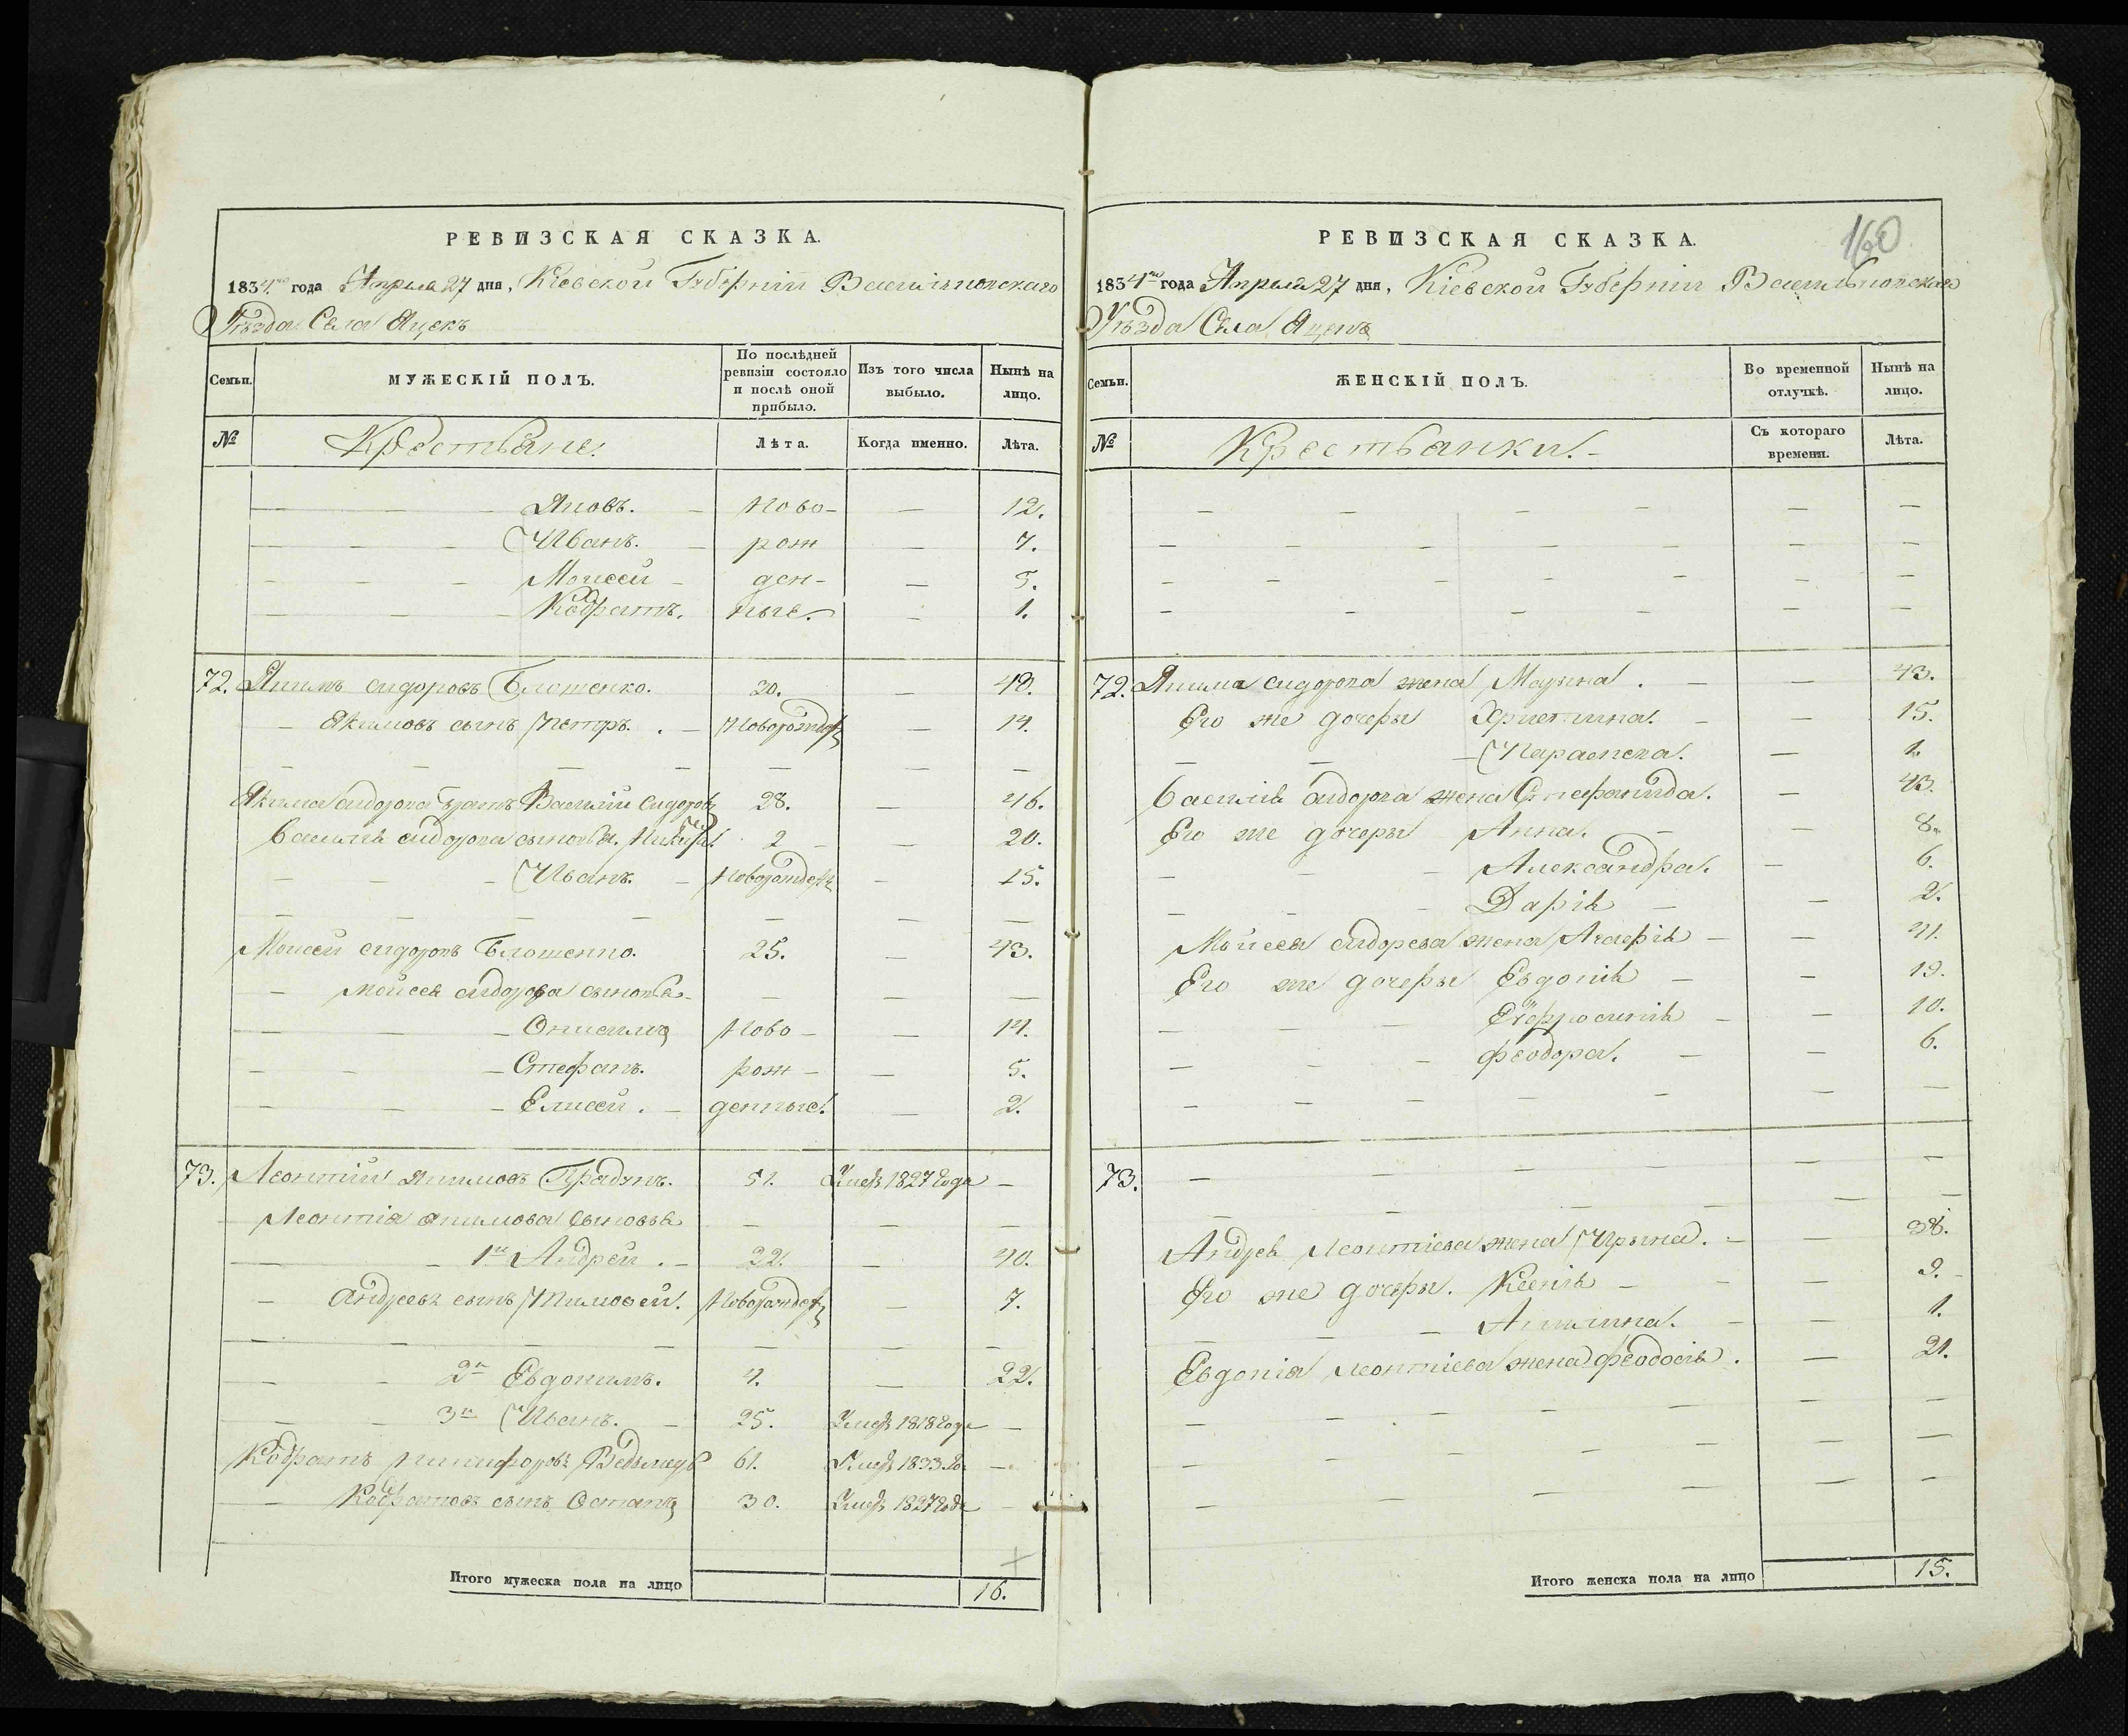 РЕВИЗСКАЯ СКАЗКА.
1834го года Апреля 27 дня, Кіевской Губерніи Васильковскаго
Уѣзда Села Яцекъ
Семьи. МУЖЕСКІЙ ПОЛЪ. По послѣдней ревизіи состояло и послѣ оной прибыло. Изъ того числа выбыло. Нынѣ на лицо.
№ Крестьяне. Лѣта. Когда именно. Лѣта.
— — — Яковъ. — Ново- — 12.
— — — Иванъ. — рож — 7.
— — — Моисей — ден- — 5.
— — — Кодратъ. ные. — 1.
72. Якимъ сидоровъ Блошенко. 30. — 48.
— Якимовъ сынъ Петръ. — Новорожден — 14.
— — — — — — —
Якима сидорова братъ Василій Сидоровъ 28. — 46.
Василія сидорова сыновья. 2 — 20.
— — — Иванъ. — Новорожден — 15.
— — — — — — —
Моисей сидоровъ Блошенко. 25. — 43.
— Моисея сидорова сыновья — — — —
— — — Онисимъ Ново — — 14.
— — — Стефанъ. рож — — 5.
— — — Елисей. — денные. — 2.
73. Леонтій якимовъ 51. Умеръ 1827 Года —
— Леонтія якимова сыновья — — —
— — 1й Андрей. — 22. — 40.
— Андреевъ сынъ Тимофей. Новорожден — 7.
— — — — — — —
— — 2й Евдокимъ. 4. — 22.
— — 3й Иванъ. — 25. Умеръ 1818 года —
Кодратъ Никифоровъ Ведьмедь 61. Умеръ 1833 го. —
— Кодратовъ сынъ Остапъ 30. Умеръ 1827 Года —
Итого мужеска пола на лицо 16.
160
РЕВИЗСКАЯ СКАЗКА.
1834го года Апреля 27 дня, Кіевской Губерніи Васильковскаго
Уѣзда Села Яцекъ
Семьи. ЖЕНСКІЙ ПОЛЪ. Во временной отлучкѣ. Нынѣ на лицо.
№ Крестьянки. — Съ котораго времени. Лѣта.
— — — — — —
— — — — — —
— — — — — —
— — — — — —
72. Якима сидорова жена Марына. — — 43.
Его же дочеры Христина. — — 15.
— — — Параскева. — 1.
Василія сидорова жена Стефанида. — 43.
Его же дочеры Анна. — — 8.
— — — Александра. — 6.
— — — Дарія — — 2.
Мойсея сидорова жена — — 41.
Его же дочеры Евдокія — — 19.
— — — Ефросинія — — 10.
— — — Феодора. — — 6.
— — — — — —
73. — — — — —
— — — — — —
Андрея Леонтіева жена Ирына. — — 38.
Его же дочеры. Ксенія — — 9.
— — — Акилина. — — 1.
Евдокіма леонтіева жена Феодосія. — 21.
— — — — — —
— — — — — —
— — — — — —
Итого женска пола на лицо 15.